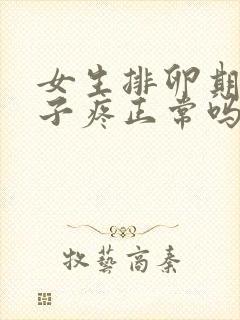 女生排卵期
子疼正常吗
牧艺高秦